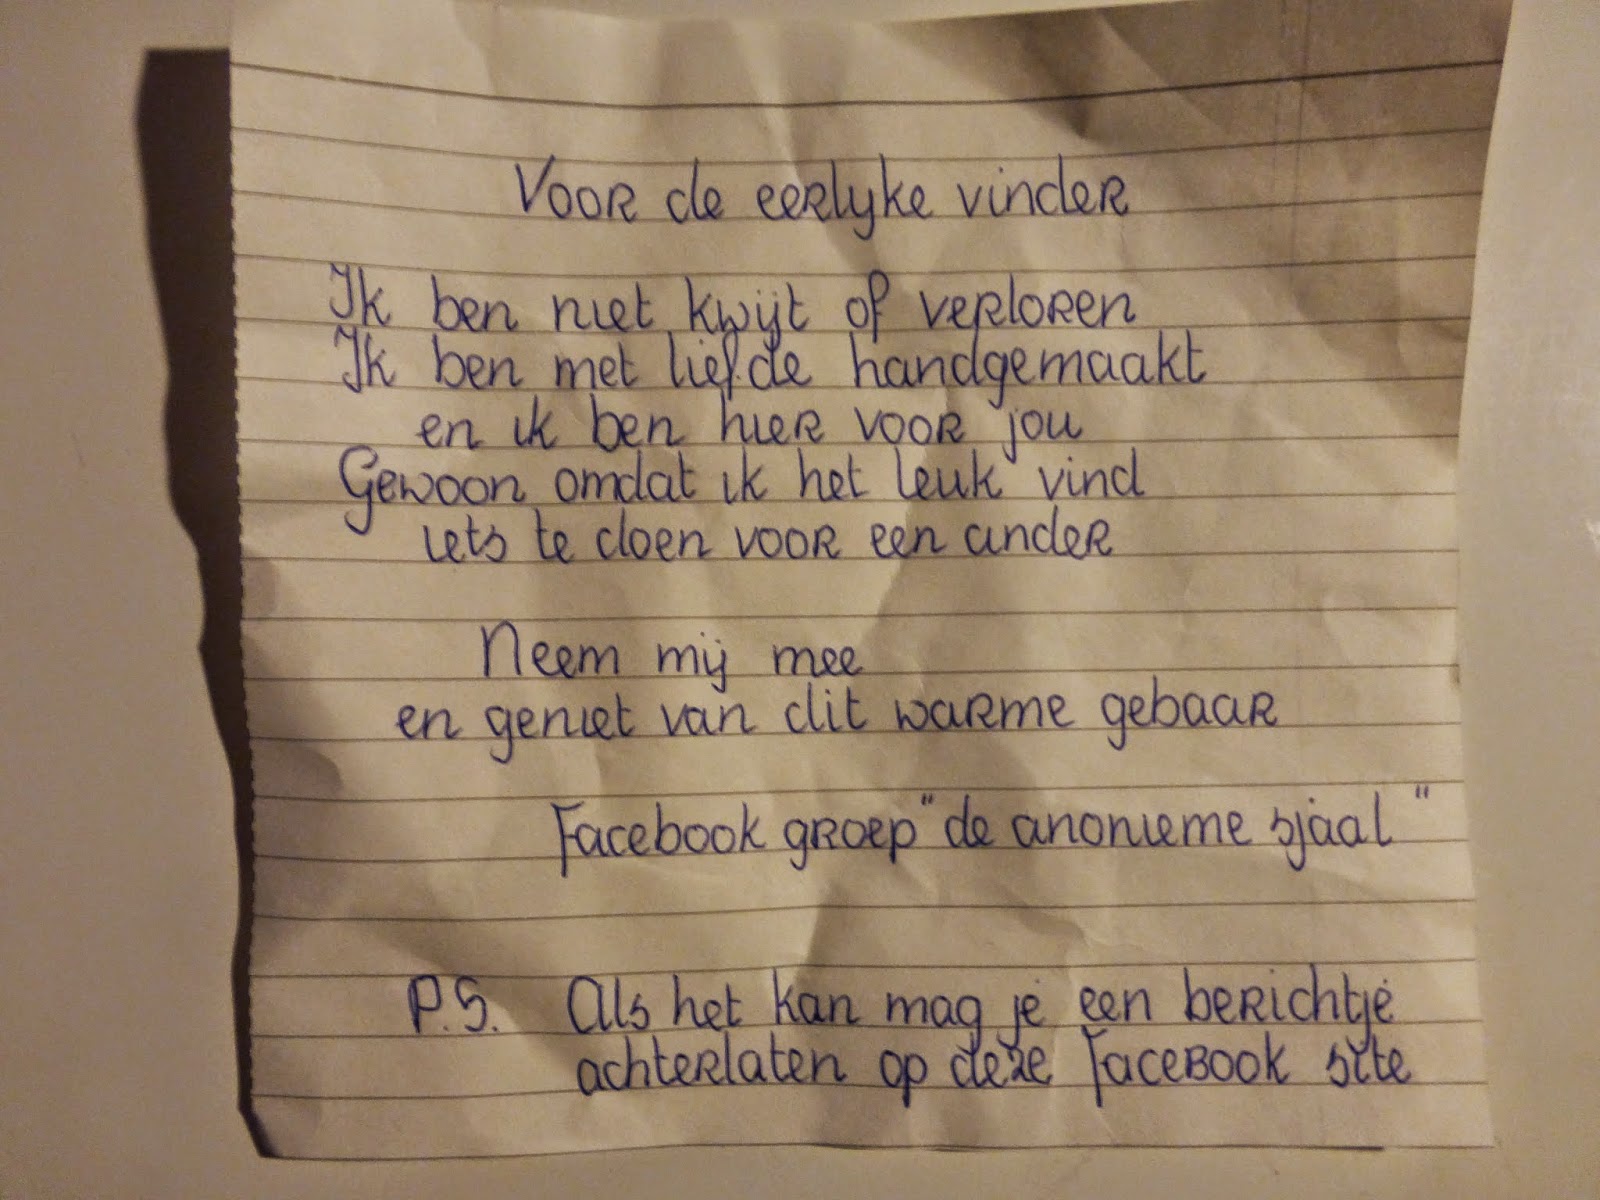 Voor de eerlyke vinder
Ik ben niet kwijt of verloren
Ik ben met liefde handgemaakt
en ik ben hier voor jou
Gewoon omdat ik het leuk vind
iets te doen voor een ander
Neem mij mee
en geniet van dit warme gebaar
Facebook groep "de anonieme sjaal"
P.S. Als het kan mag je een berichtje
achterlaten op deze Facebook site